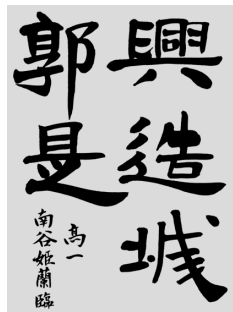 興造城
郭是
高一
南谷姫蘭臨